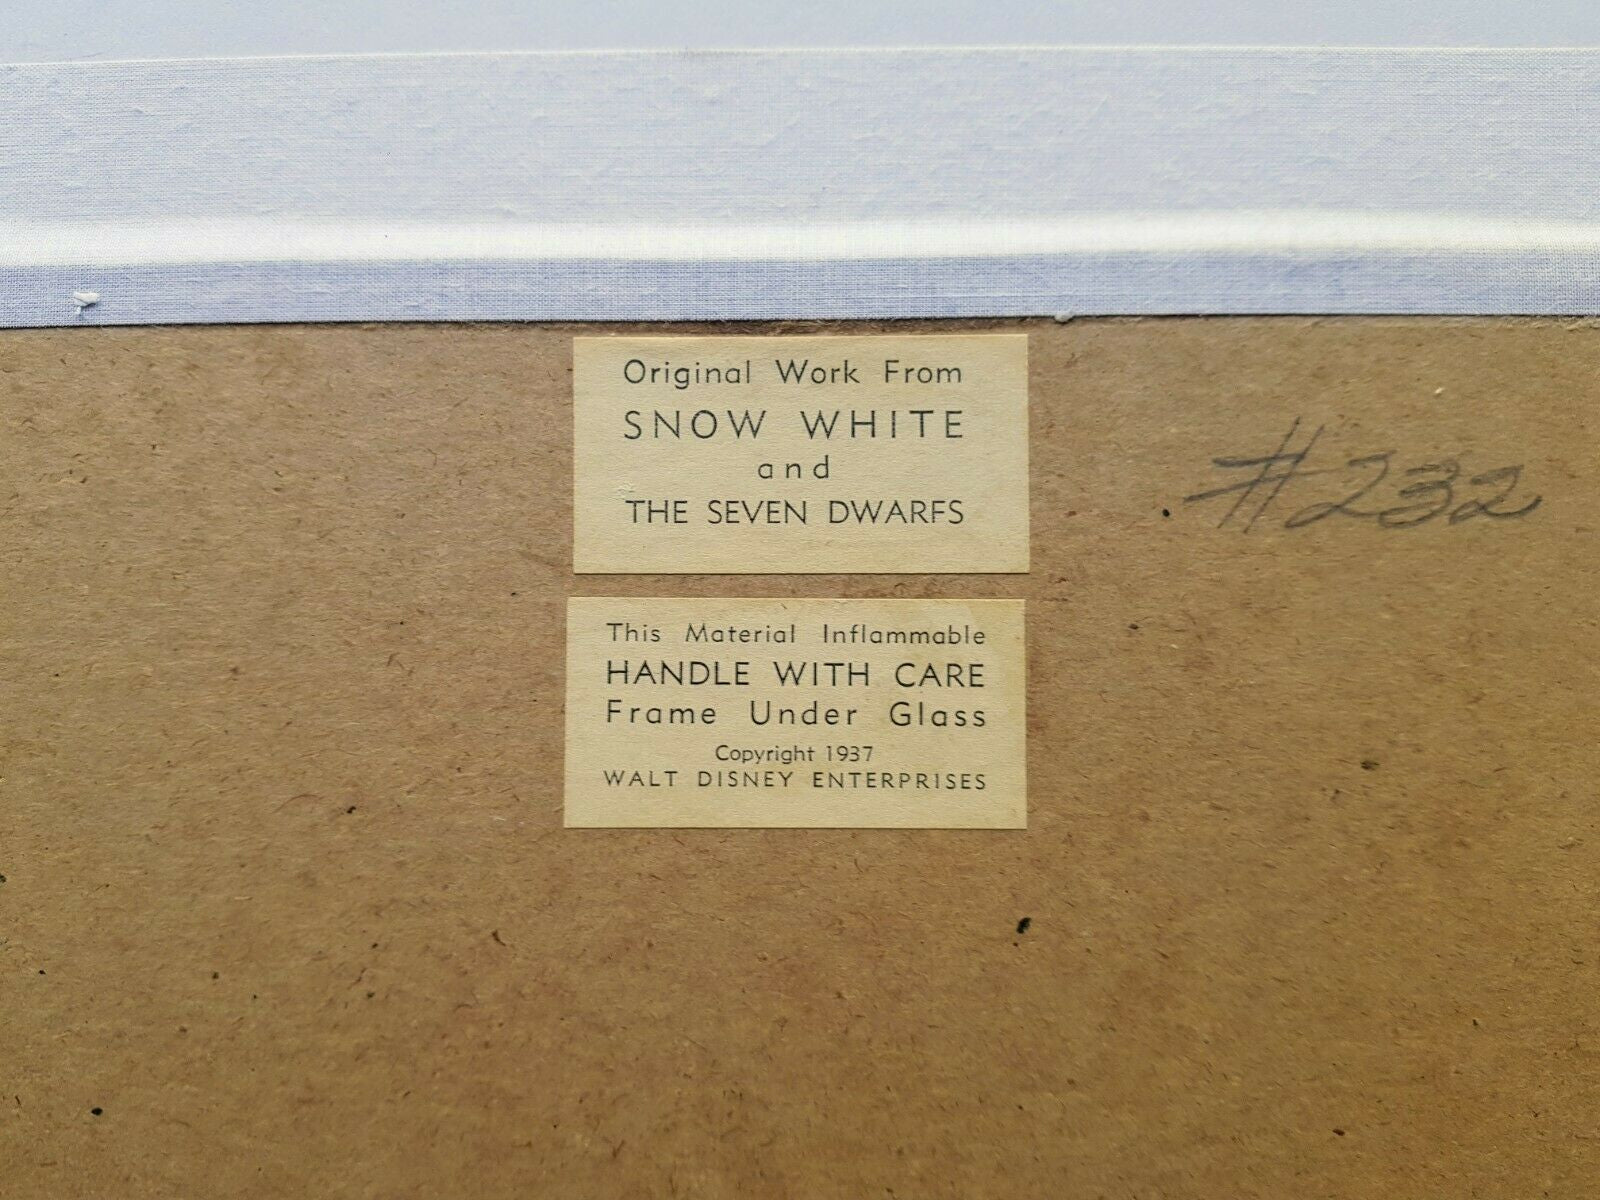 Original Work From
SNOW WHITE
and
THE SEVEN DWARFS
#232
This Material Inflammable
HANDLE WITH CARE
Frame Under Glass
Copyright 1937
WALT DISNEY ENTERPRISES